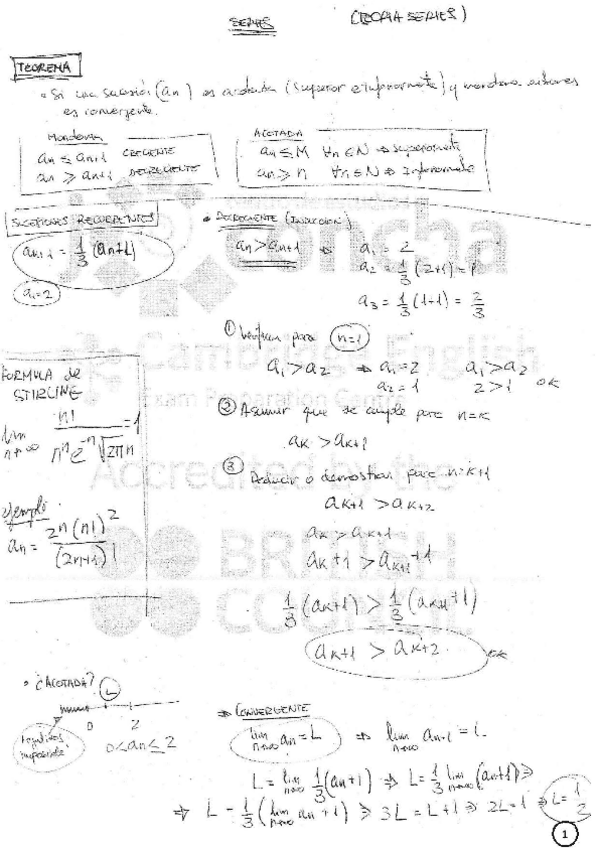 SERIES (TEORIA SERIES)
TEOREMA
• Si una sucesión (an) es acotada (superior e inferiormente) y monótona entonces
es convergente.
Monótona
an ≤ an+1 CRECIENTE
an ≥ an+1 DECRECIENTE
ACOTADA
an ≤ M ∀n∈N ⇒ Superiormente
an ≥ n ∀n∈N ⇒ Inferiormente
SUCESIONES RECURRENTES
an+1 = 1/3 (an+1)
a1=2
• DECRECIENTE (INDUCCION)
an > an+1 ⇒ a1 = 2
a2 = 1/3 (2+1) = 1
a3 = 1/3 (1+1) = 2/3
① Verifican para n=1
a1 > a2 ⇒ a1=2 a1>a2
a2=1 2>1 OK
② Asumir que se cumple para n=k
ak > ak+1
③ Deducir o demostrar para n=k+1
ak+1 > ak+2
ak > ak+1
ak+1 > ak+1+1
1/3 (ak+1) > 1/3 (ak+1+1)
ak+1 > ak+2 OK
FORMULA de
STIRLING
lim n→∞ n! / n^n e^-n √2πn = 1
ejemplo
an = 2^n (n!)^2 / (2n+1)!
• ¿ACOTADA? L
0 2
negativos
imposible
0<an≤2
⇒ CONVERGENTE
lim n→∞ an = L ⇒ lim n→∞ an+1 = L
L = lim n→∞ 1/3 (an+1) ⇒ L = 1/3 lim n→∞ (an+1) ⇒
⇒ L = 1/3 (lim n→∞ an + 1) ⇒ 3L = L+1 ⇒ 2L=1 ⇒ L = 1/2
1
concha
Cambridge English
Exam Preparation Centre
Accredited by the
BRITISH
COUNCIL